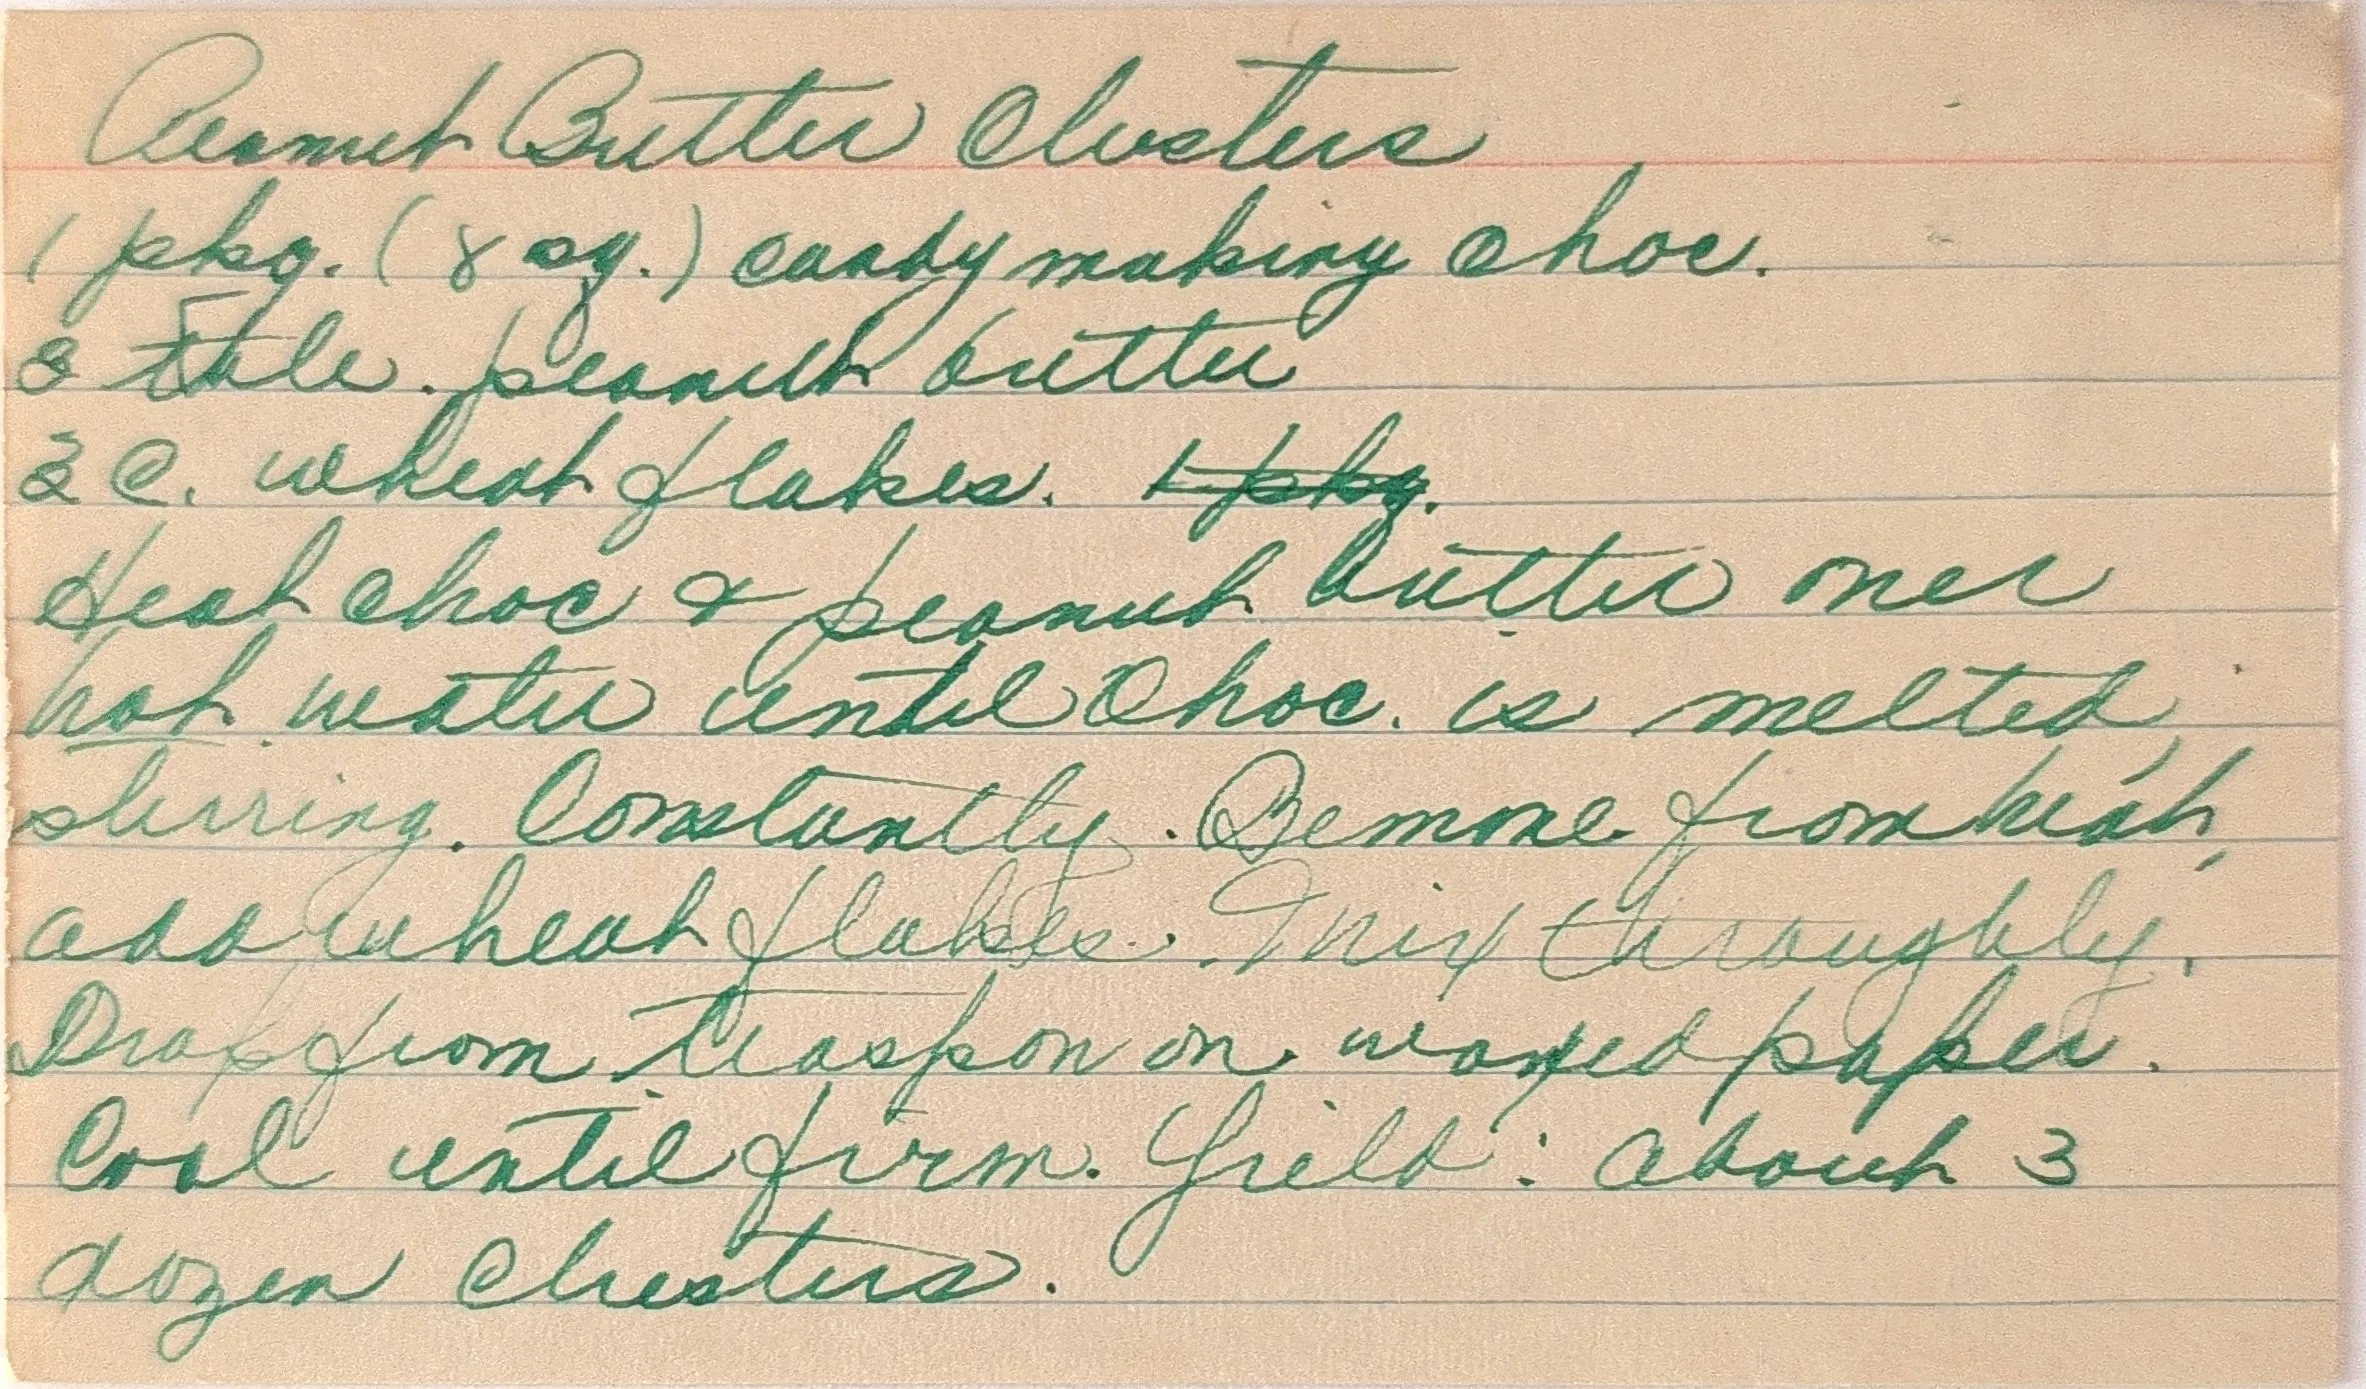 Peanut Butter Clusters
1 pkg. (8 sq.) candy making choc.
3 Table. peanut butter
2 C. wheat flakes. 1 pkg.
Heat choc & peanut butter over
hot water until choc. is melted,
stirring. Constantly. Remove from heat,
add wheat flakes. Mix throughly.
Drop from teaspon on waxed paper.
Cool until firm. Yield: about 3
dozen clusters.